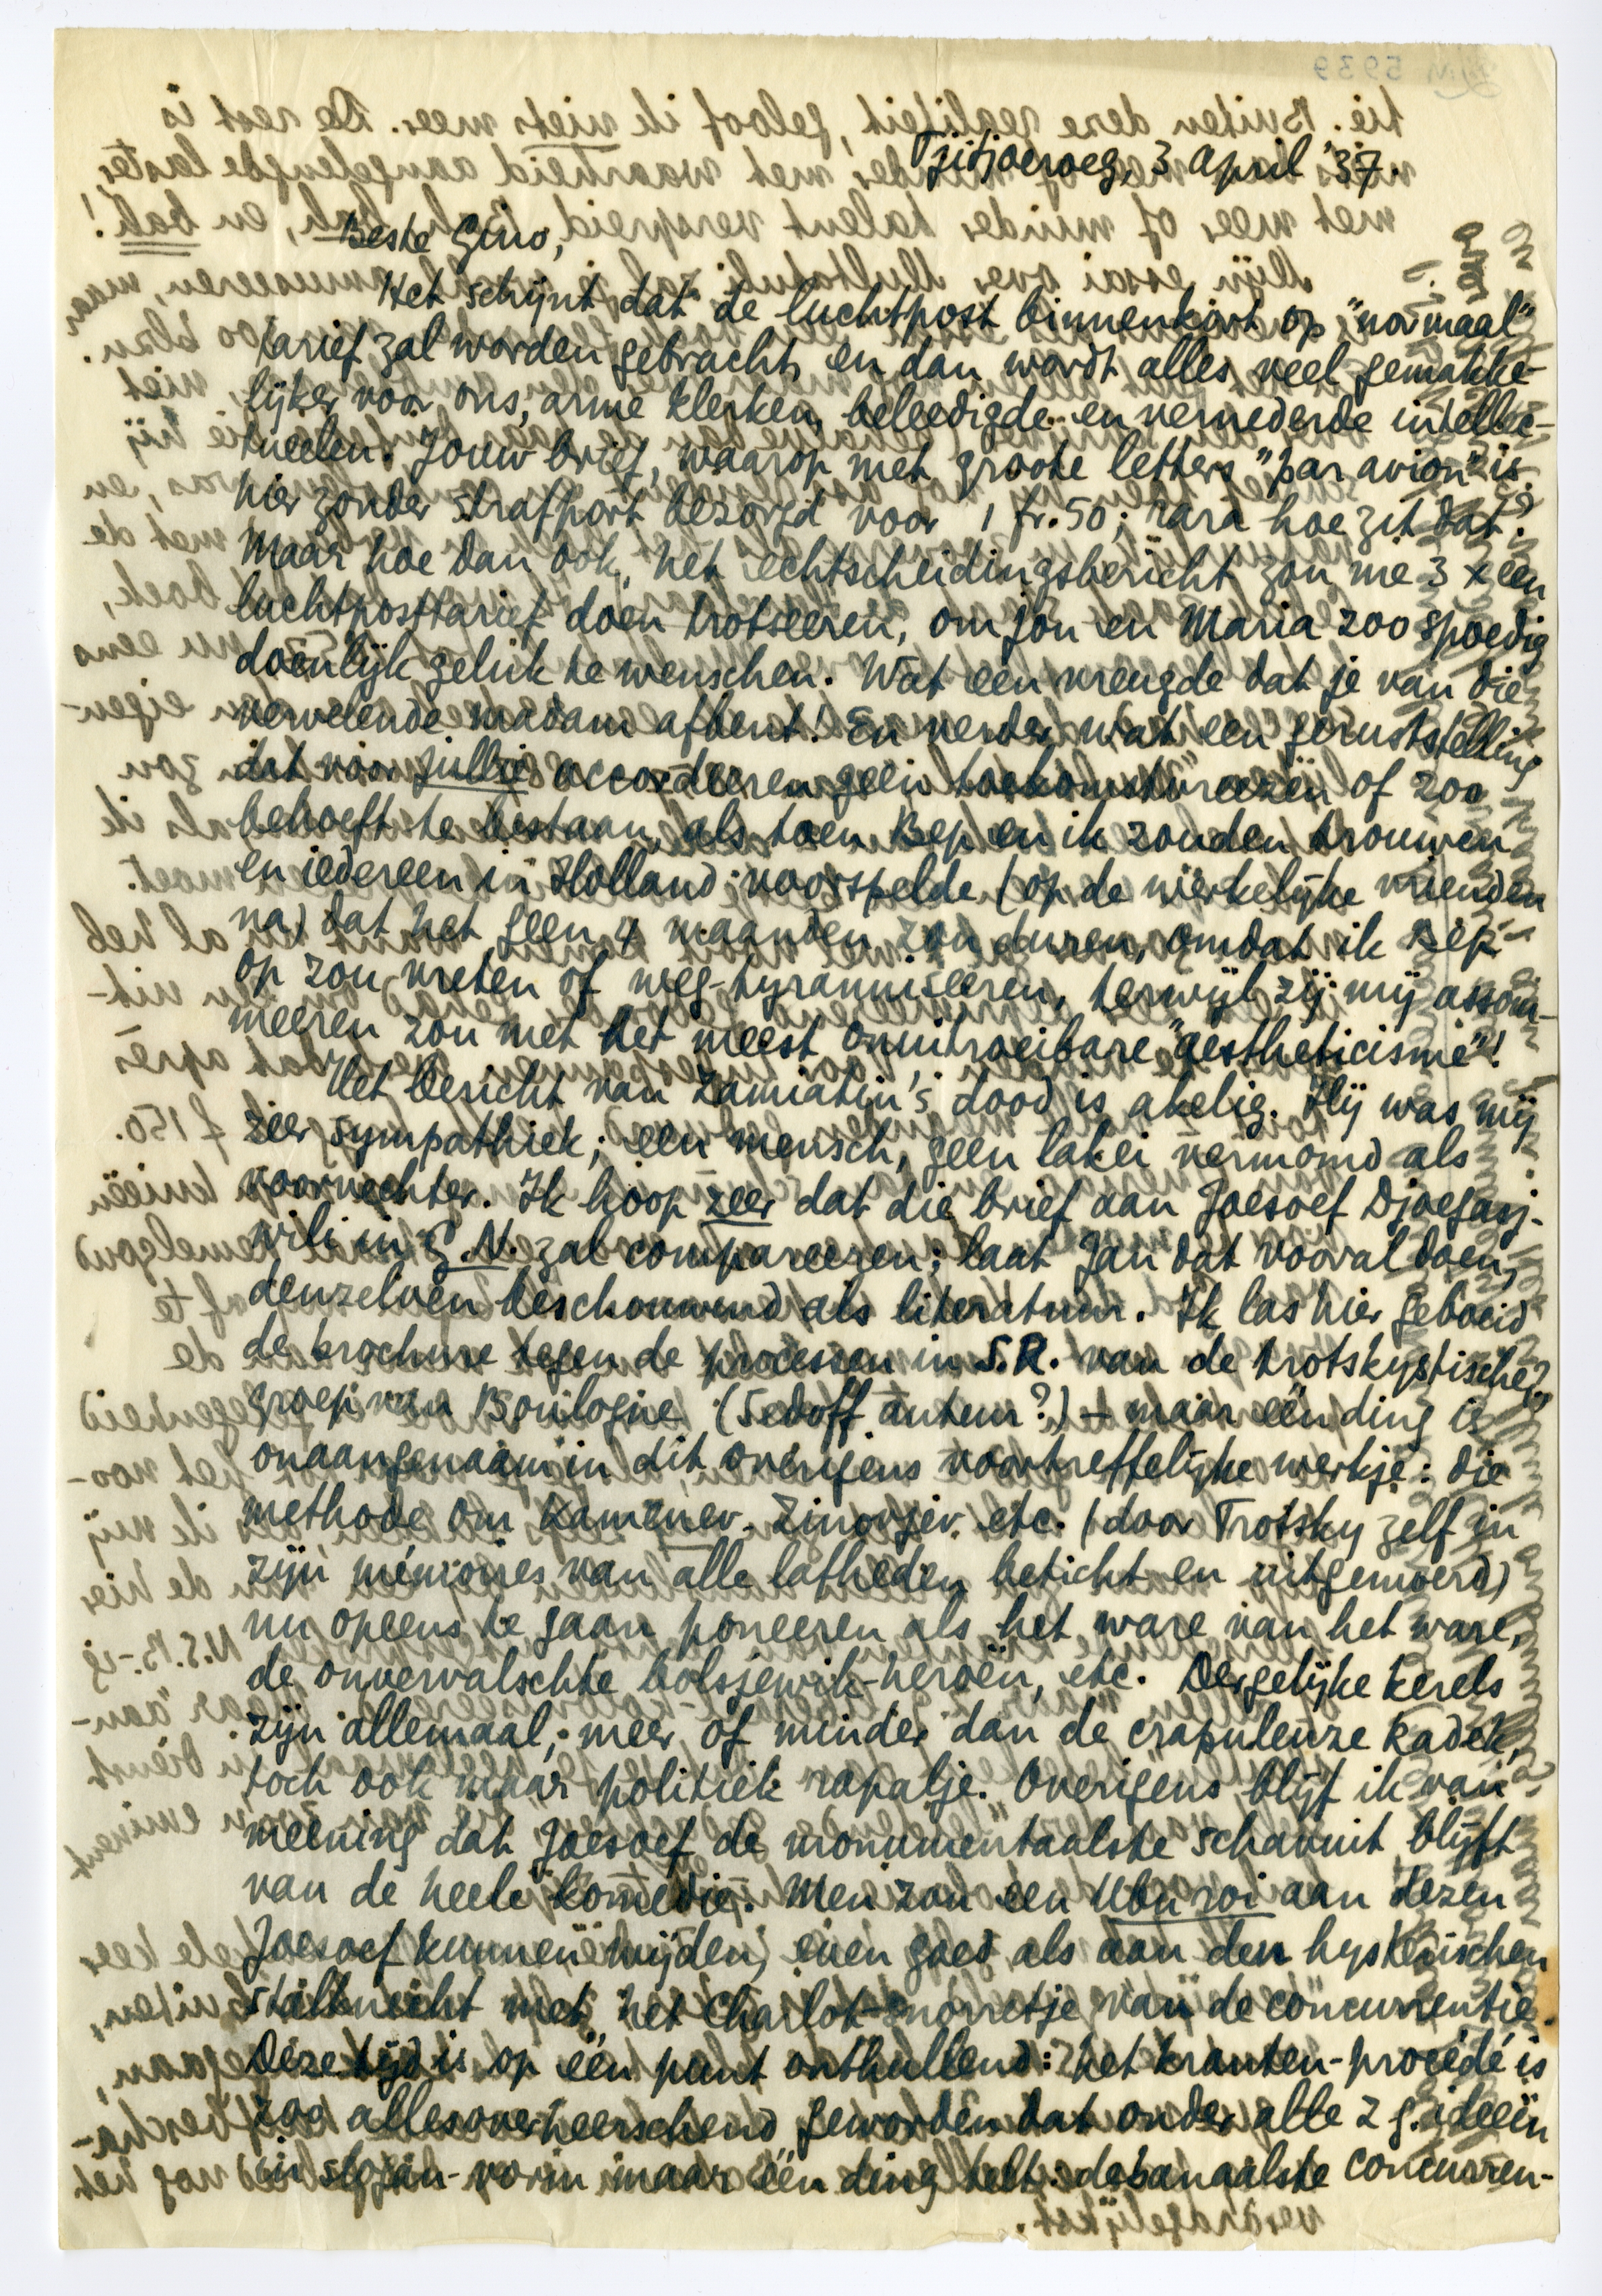 Tjitjoeroeg, 3 April '37.
Beste Gino,
Het schijnt dat de luchtpost binnenkort op "normaal"
tarief zal worden gebracht, en dan wordt alles veel gemakke-
lijker voor ons, arme klerken, beleedigde en vernederde intellec-
tueelen. Jouw brief, waarop met groote letters "par avion" is
hier zonder strafport bezorgd voor 1 fr. 50; rara hoe zit dat?
Maar hoe dan ook, het echtscheidingsbericht zou me 3 x een
luchtposttarief doen trotseeren, om jou en Maria zoo spoedig
doenlijk geluk te wenschen. Wat een vreugde dat je van die
vervelende madam afbent! En verder, wat een geruststelling
dat voor jullie accordeeren geen toekomstvreezen of zoo
behoeft te bestaan, als toen Bep en ik zouden trouwen
en iedereen in Holland voorspelde (op de werkelijke vrienden
na) dat het geen 4 maanden zou duren, omdat ik Bep
op zou vreten of weg-tyranniseeren, terwijl zij mij assom-
meeren zou met het meest onuitroeibare "aestheticisme"!
Het bericht van Zamiatin's dood is akelig. Hij was mij
zeer sympathiek; een mensch, geen lakei vermomd als
voorvechter. Ik hoop zeer dat die brief aan Joesoef Djoegasj-
vili in G.N. zal compareeren; laat Jan dat vooral doen,
denzelven beschouwend als literatuur. Ik las hier geboeid
de brochure tegen de processen in S.R. van de trotskystische
groep van Boulogne (Sedoff auteur?) – maar één ding is
onaangenaam in dit overigens voortreffelijke werkje: die
methode om Kamenev, Zinovjev, etc. (door Trotsky zelf in
zijn mémoires van alle lafheden beticht en uitgemoerd)
nu opeens te gaan poneeren als het ware van het ware,
de onvervalschte bolsjewik-heroën, etc. Dergelijke kerels
zijn allemaal, meer of minder dan de crapuleuze Radek,
toch ook maar politiek rapalje. Overigens blijf ik van
meening dat Joesoef de monumentaalste schavuit blijft
van de heele komedie. Men zou een Ubu roi aan dezen
Joesoef kunnen wijden, even goed als aan den hysterischen
stalknecht met het Charlot-snorretje van de concurrentie.
Deze tijd is op één punt onthullend: het kranten-procédé is
zoo allesoverheerschend geworden dat onder alle z.g. ideeën
in slogan-vorm maar één ding telt: de banaalste concurren-